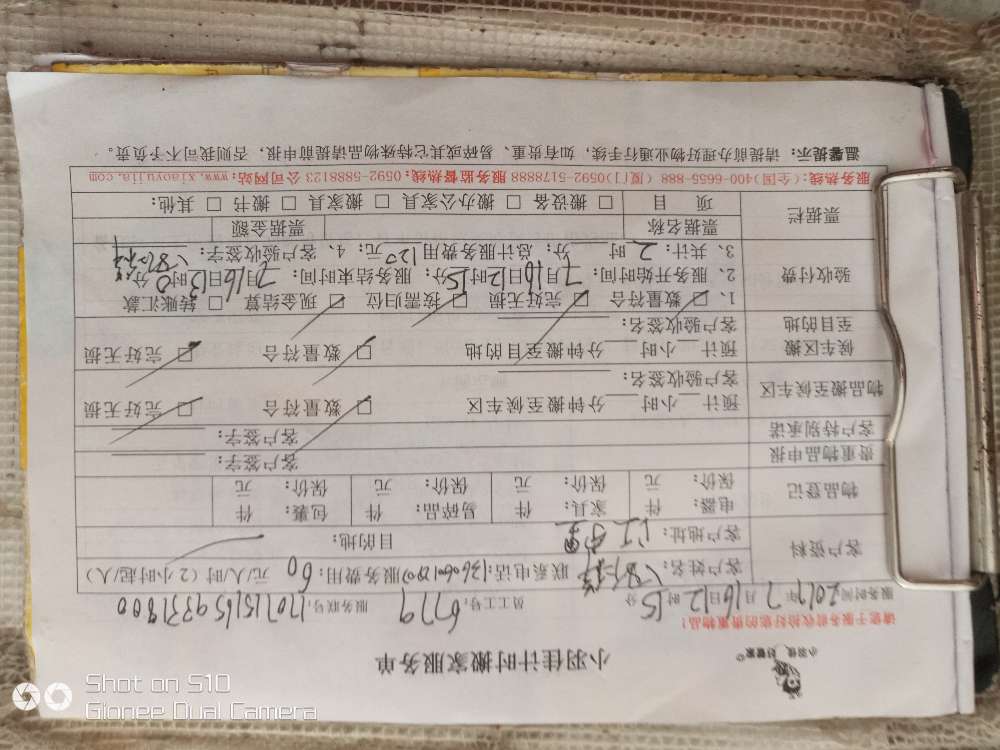 小羽佳 好管家
小羽佳计时搬家服务单
请您于服务前收拾好您的贵重物品!
服务时间 2017年 7月 16日 12时 15分 员工工号: 6779 服务联号: 1707151659331800
客户资料 客户姓名: 联系电话: 服务费用: 60 元/人/时 (2小时起/人)
客户地址: 目的地:
物品登记 电器: 件 家具: 件 易碎品: 件 包裹: 件
保价: 元 保价: 元 保价: 元 保价: 元
贵重物品申报 客户签字:
客户特别承诺 客户签字:
物品搬至候车区 预计 小时 分钟搬至候车区 □ 数量符合 □ 完好无损
客户验收签名:
候车区搬至目的地 预计 小时 分钟搬至目的地 □ 数量符合 □ 完好无损
客户验收签名:
验收付费 1、□ 数量符合 □ 完好无损 □ 按需归位 □ 现金结算 □ 转账汇款
2、服务开始时间: 7月16日12时15分; 服务结束时间: 7月16日13时0分
3、共计: 2时 分; 总计服务费用 120 元; 4、客户验收签字:
票据栏 票据名称 票据金额
项目 □ 搬设备 □ 搬办公家具 □ 搬家具 □ 搬书 □ 其他:
服务热线:(全国)400-6655-888 (厦门)0592-5178888 服务监督热线: 0592-5888123 公司网站: www.xiaoyujia.com
温馨提示: 请提前办理好物业通行手续, 如有贵重、易碎或其它特殊物品请提前申报, 否则我司不予负责。
Shot on S10
Gionee Dual Camera